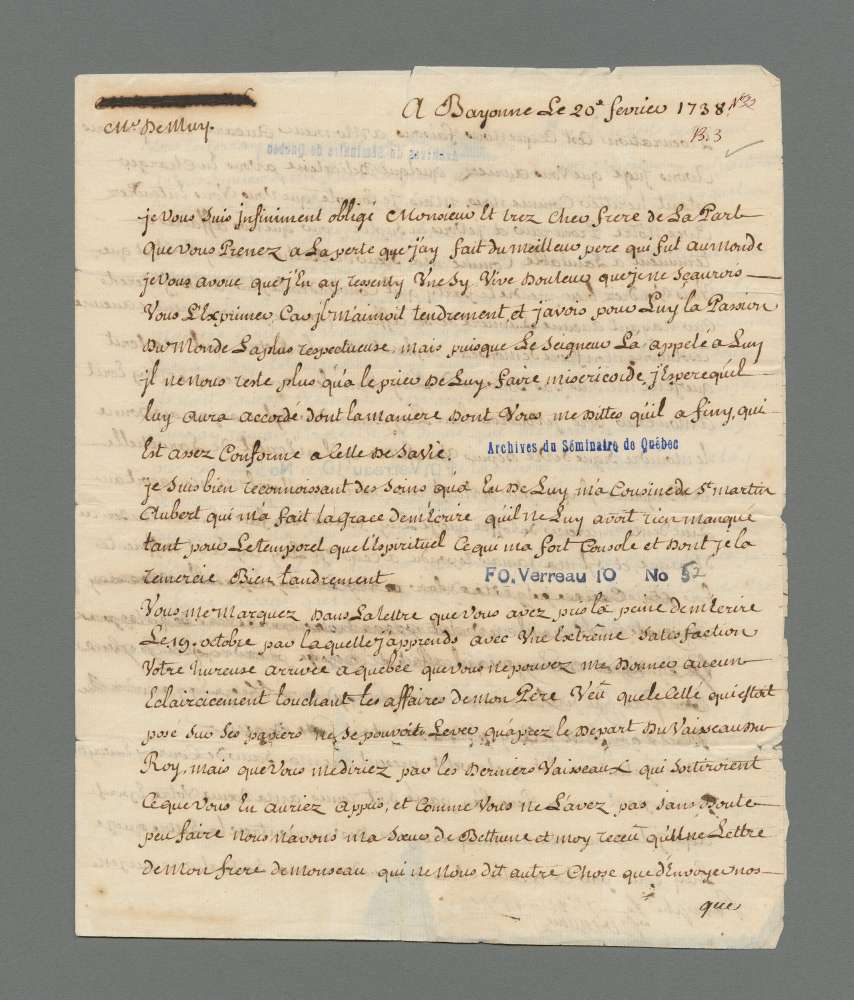 A Bayonne Le 20e fevrier 1738 N°32
Mr De Muy.
B. 3
je vous suis infiniment obligé Monsieur Et trez cher frere de La Part
que vous Prenez a La perte que j'ay fait du meilleur pere qui fut au monde
je vous avoue que j'En ay ressenty Une Sy Vive Douleur que je ne sçaurois
Vous L'Exprimer Car jl M'aimoit tendrement, et j'avois pour Luy la Passion
Du Monde La plus respectueuse, mais puisque Le seigneur La appelé a Luy
jl ne Nous reste plus qu'a le prier De Luy faire misericorde, j'Espere qu'il
luy aura accordé dont la maniere Dont Vous me Dittes qu'il a finy, qui
Est assez Conforme a Celle De Sa Vie.
Archives du Séminaire de Québec
je suis bien reconnoissant des soins qu'a Eu De Luy ma Cousine de St martin
Aubert qui m'a fait la grace de m'Ecrire qu'il ne Luy avoit rien manqué
tant pour Le temporel que l'Espirituel Ce qui ma fort Consolé et Dont je la
remercie Bien tandrement.
FO. Verreau 10 No 52
Vous me Marquez Dans La lettre que vous avez pris la peine de m'Ecrire
Le 19. octobre par laquelle j'apprends avec Une Extrême satisfaction
Votre hureuse arrivée a quebec que vous ne pouvez me Donner aucun
Eclaircicement touchant Les affaires de mon Pere Veü que le Cellé qui Estoit
posé sur ses papiers ne se pouvoit Lever qu'aprez le Depart Du Vaisseau Du
Roy, mais que Vous me diriez par les Derniers Vaisseaux qui sortiroient
Ce que vous En auriez appris, et Comme Vous ne L'avez pas sans Doute
peu faire Nous n'avons ma sœur de Bethune et moy receu qu'Une Lettre
De mon frere de monseau qui ne Nous dit autre Chose que d'Envoyer nos
que